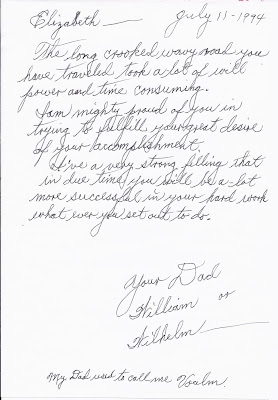 Elizabeth — July 11-1994
The long crooked wavy road you
have traveled took a lot of will
power and time consuming.
I am mighty proud of you in
trying to fulfill your great desire
of your accomplishment.
I've a very strong filling that
in due time you will be a lot
more successful in your hard work
what ever you set out to do.
Your Dad
William or
Wilhelm
My Dad used to call me Voalm.